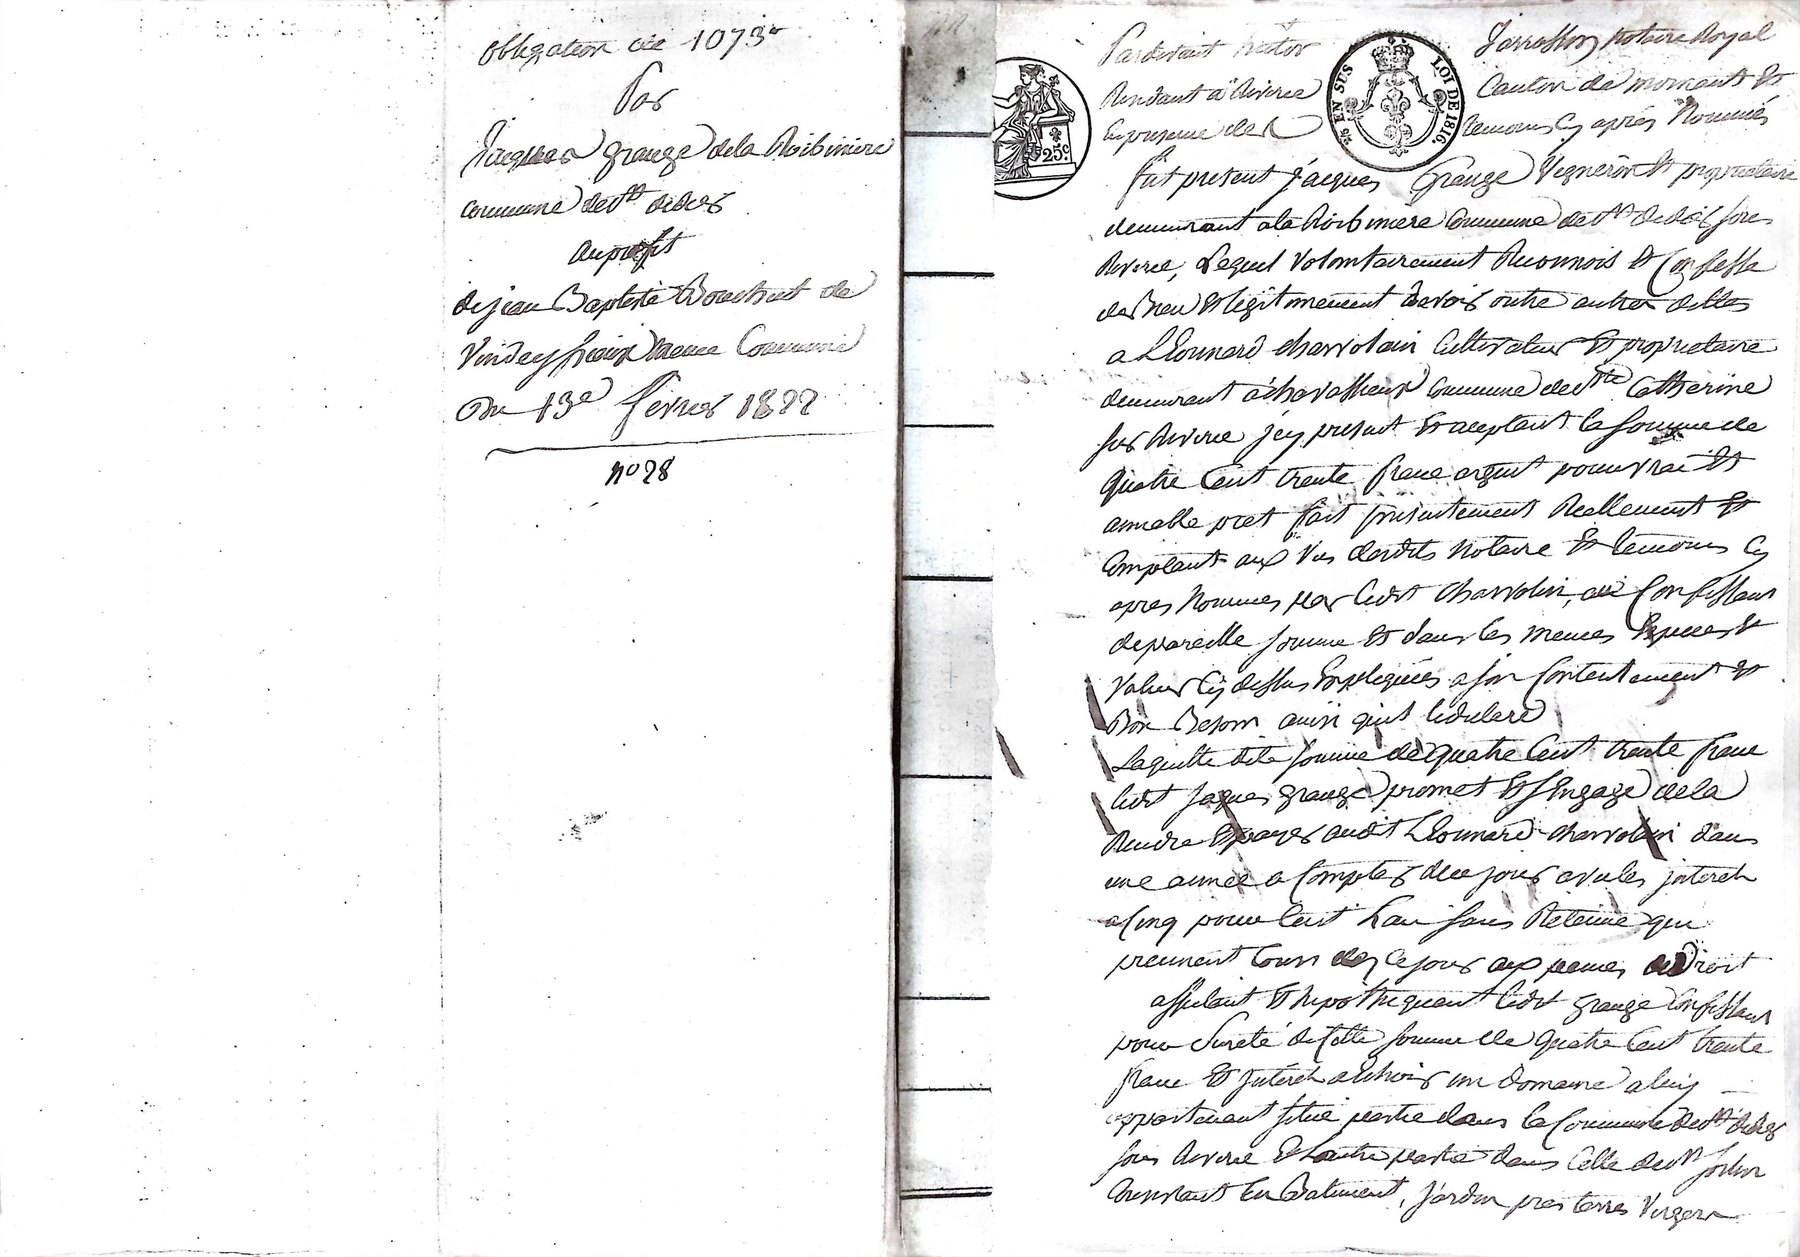 obligation de 1073 fr
Par
Jacques grange dela Roibiniere
commune de St didier
au profit
de jean Baptiste Bouchut de
même Commune
Du 13e fevrier 1822
no 28
Pardevant Notaire Royal
Residant a Riverie Canton de mornant Et
En presence des temoins Cy après Nommés
fut present jacques Grange Vigneron Et propriétaire
demeurant a la Roibiniere Commune de St didier sous
Riverie, Lequel Volontairement Reconnois Et Confesse
de Bien Et legitimement devoir outre autres dettes
a Léonnard charvolain Cultivateur Et proprietaire
demeurant a Commune de Ste Catherine
sur Riverie jcy present Et acceptant la somme de
Quatre Cent trente franc argent pour vrai Et
amiable pret fait presentement Reellement Et
Comptant aux Vus desdits Notaire Et temoins Cy
apres Nommes par ledit Charvolin, au Confessant
de pareille somme Et dans les memes Especes Et
Valeur Cy dessus Expliquées a son Contentement Et
Bon Besoin ainsi quil le declare
Laquelle dite somme de quatre Cent trente franc
ledit Jaques grange promet Et sEngage de la
Rendre Et payer audit Léonnard charvolain dans
une année a Compter de ce jour avec les jnterets
a Cinq pour Cent Lan sans Retenue qui
prennent Cours des ce jour aux peines de Droit
affectant Et hipothequant ledit grange Confessant
pour Sureté de Cette somme de quatre Cent trente
franc Et jnterets a Echoir un domaine a luy
appartenant situé partie dans la Commune de St didier
sous Riverie Et Lautre partie dans Celle de St Sorlin
Consistant En Batiment, jardin pres terres Vergers
25c.
EN SUS
LOI DE 1816